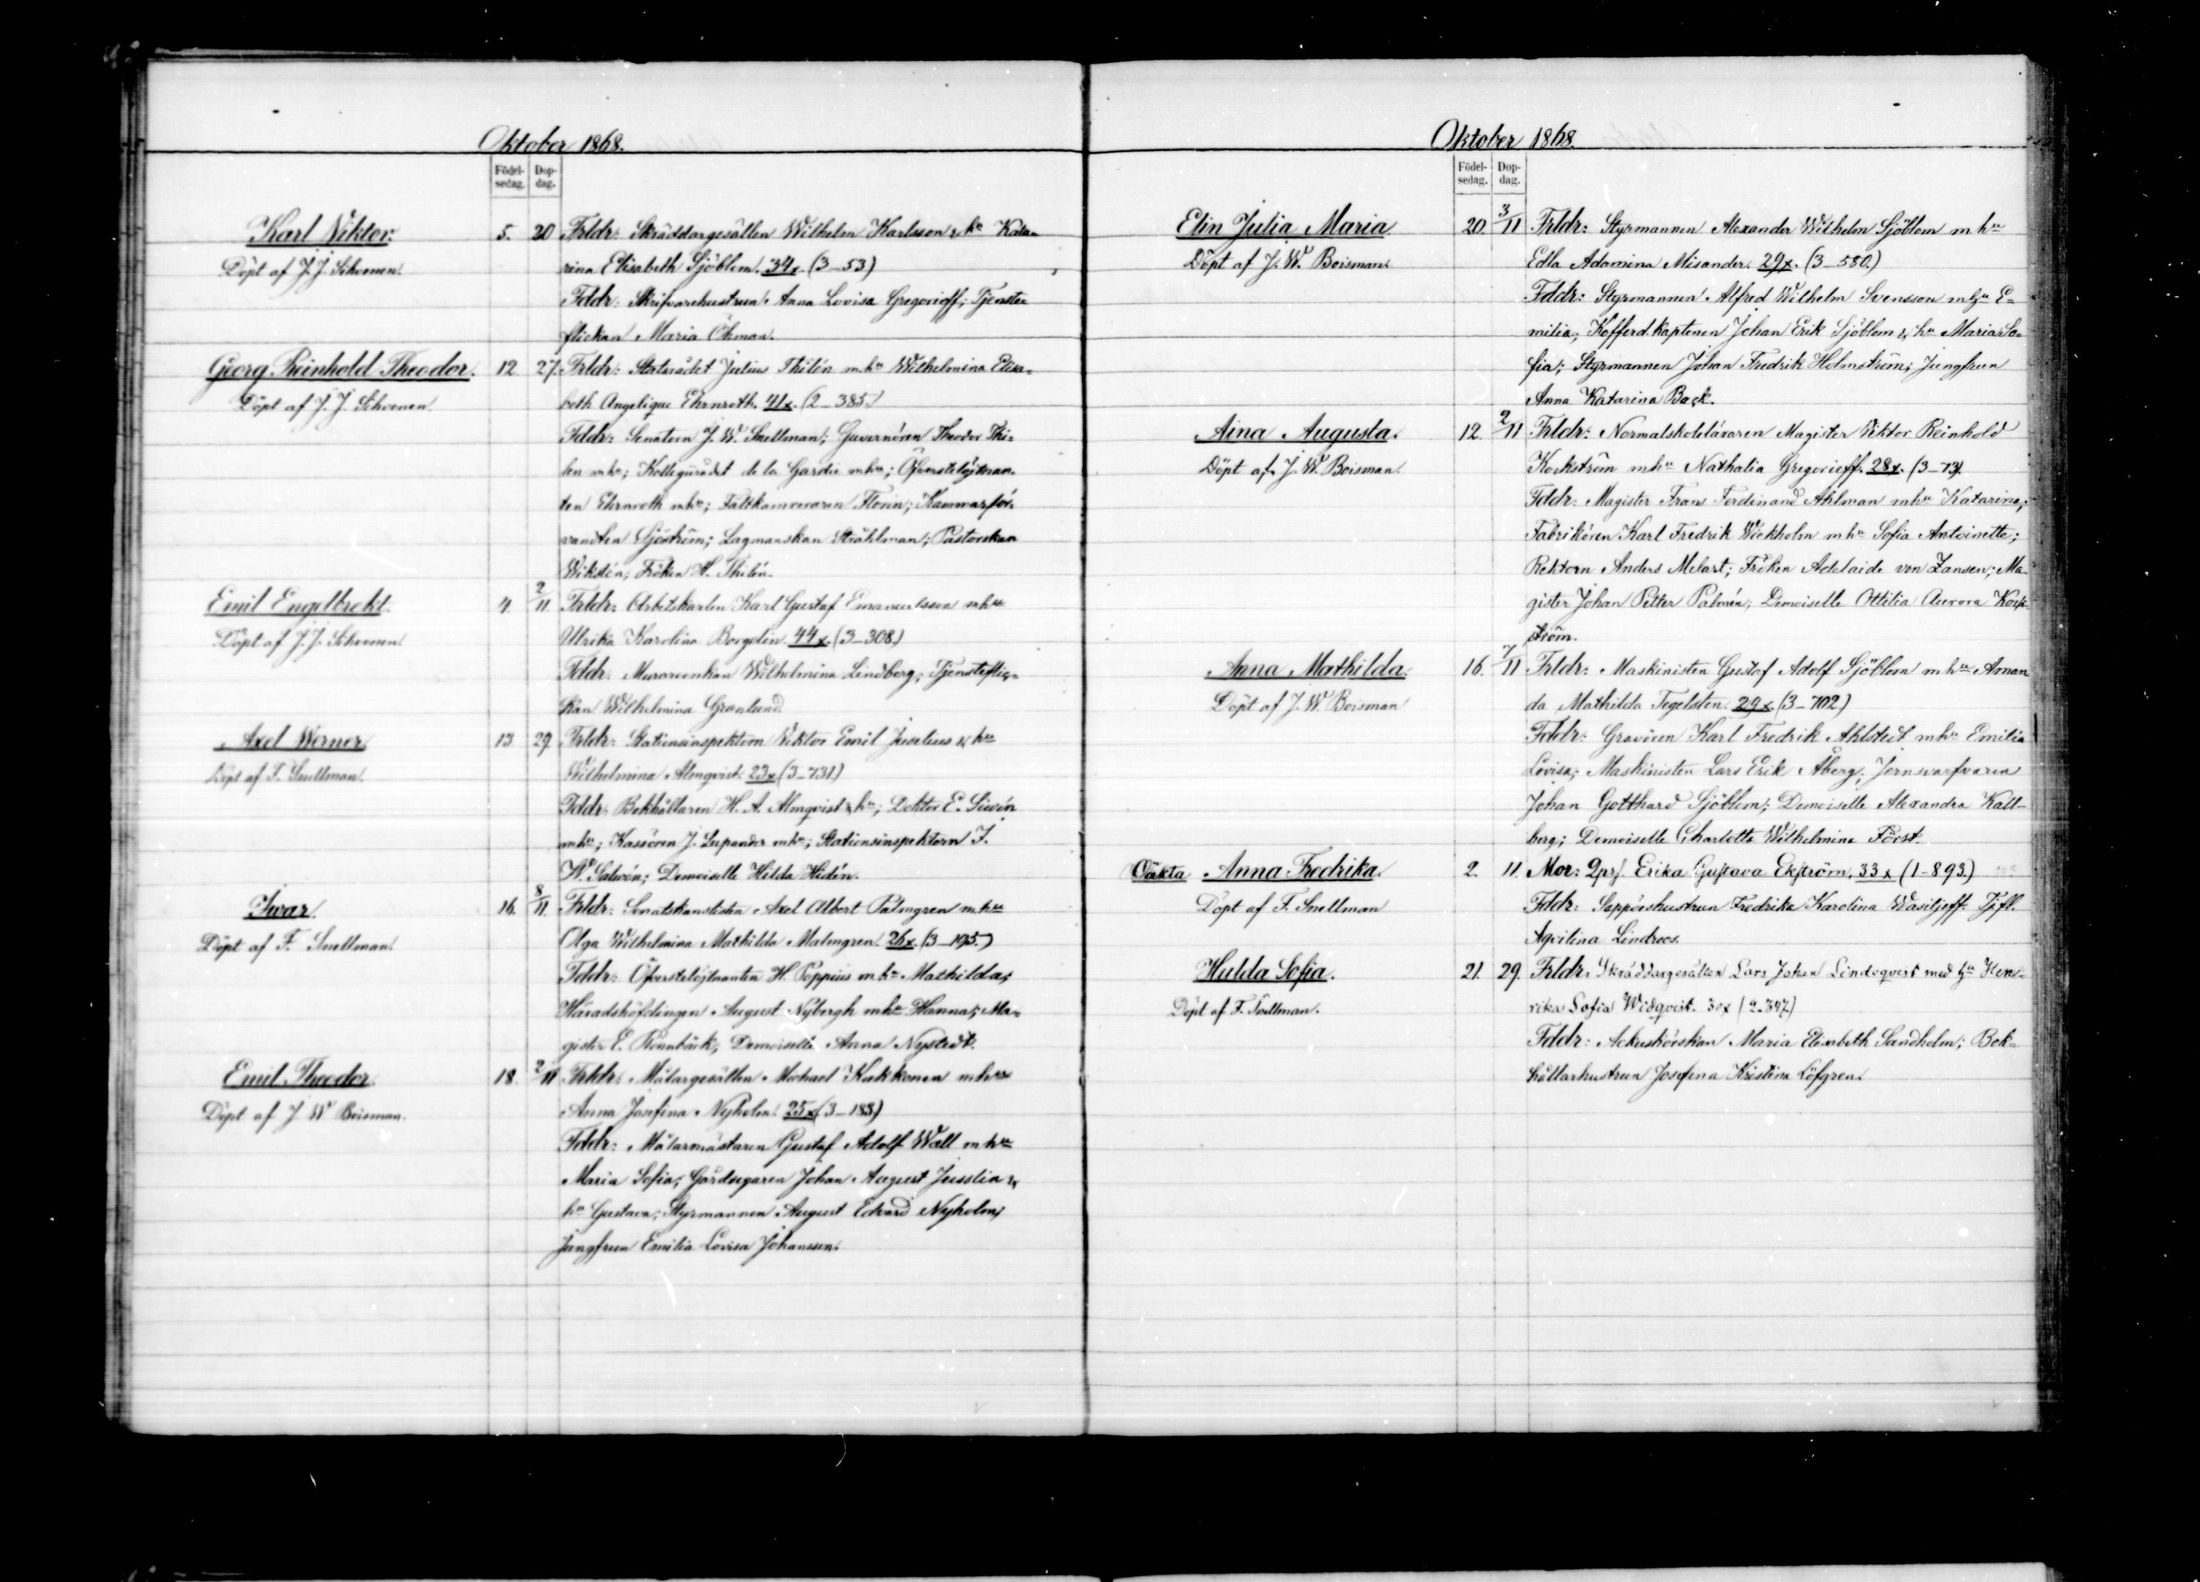 Oktober 1868.
Födel-
sedag.
Dop-
dag.
Karl Viktor.
Döpt af J. J. Schonen.
5. 20
Frldr: Skräddargesällen Wilhelm Karlsson & hu Kata-
rina Elisabeth Sjöblom. 34x. (3-53)
Fddr: Skrifvarehustrun Anna Lovisa Gregorioff; Tjenste-
flickan Maria Öhman.
Georg Reinhold Theodor.
Döpt af J. J. Schonen.
12 27
Frldr: Statsrådet Julius Thilén m. hu Wilhelmina Elisa-
beth Angelique Ehrnroth. 41x. (2-385.)
Fddr: Senatorn J. W. Snellman; Guvernören Theodor Thi-
len m hu; Kollegierådet de la Gardie m hu; Öfverstelöjtnan-
ten Ehrnroth m hu; Fältkamreraren Florin; Kammarför-
vandten Sjöström; Lagmanskan Stråhlman; Pastorskan
Wikstén; Fröken H. Thilén.
Emil Engelbrekt.
Döpt af J. J. Schonen.
4. 2/11.
Frldr: Arbetskarlen Karl Gustaf Emanuelsson m hu
Ulrika Karolina Borgelin. 44x. (3-308.)
Fddr: Murareenkan Wilhelmina Lindberg; Tjensteflic-
kan Wilhelmina Grönlund.
Axel Werner
Döpt af F. Snellman.
13 29
Frldr: Stationsinspektorn Viktor Emil Juselius & hu
Wilhelmina Almqvist. 23x (3-731.)
Fddr: Bokhållaren H. A. Almqvist & hu; Doktor E. Sivén
m hu; Kassören J. Lupander m hu; Stationsinspektorn F.
W. Salovén; Demoiselle Hilda Hidén.
Ivar
Döpt af F. Snellman.
16. 8/11
Frldr: Senatskanslisten Axel Albert Palmgren m. hu
Olga Wilhelmina Mathilda Malmgren. 26x. (3-195.)
Fddr: Öfverstelöjtnanten H. Poppius m. hu Mathilda;
Häradshöfdingen August Nybergh m hu Hanna; Ma-
gister E. Rönnbäck; Demoiselle Anna Nystedt.
Emil Theodor.
Döpt af J. W. Boisman.
18. 2/11
Frldr: Målargesällen Michael Kakkonen m hu
Anna Josefina Nyholm. 25x (3-183)
Fddr: Målarmästaren Gustaf Adolf Wall m hu
Maria Sofia; Gårdsegaren Johan August Jusslin &
hu Gustava; Styrmannen August Edvard Nyholm;
Jungfrun Emilia Lovisa Johansson.
Oktober 1868.
Födel-
sedag.
Dop-
dag.
Elin Julia Maria
Döpt af J. W. Boisman.
20. 3/11
Frldr: Styrmannen Alexander Wilhelm Sjöblom m. hu
Edla Adamina Misander. 29x. (3-580.)
Fddr: Styrmannen Alfred Wilhelm Svensson m hu E-
milia; Kofferd.kaptenen Johan Erik Sjöblom & hu Maria So-
fia; Styrmannen Johan Fredrik Holmström; Jungfrun
Anna Katarina Back.
Aina Augusta.
Döpt af J. W. Boisman.
12. 2/11
Frldr: Normalskoleläraren Magister Viktor Reinhold
Kockström m hu Nathalia Gregorieff. 28x. (3-73.)
Fddr: Magister Frans Ferdinand Ahlman m hu Katarina;
Fabrikören Karl Fredrik Wickholm m hu Sofia Antoinette;
Rektorn Anders Melart; Fröken Adelaide von Zansen; Ma-
gister Johan Petter Palmén; Demoiselle Ottilia Aurora Kock-
ström.
Anna Mathilda.
Döpt af J. W. Boisman
16. 7/11
Frldr: Maskinisten Gustaf Adolf Sjöblom m hu Aman
da Mathilda Tegelsten. 29x. (3-702)
Fddr: Gravören Karl Fredrik Ahlstedt m hu Emilia
Lovisa; Maskinisten Lars Erik Åberg; Jernsvarfvaren
Johan Gotthard Sjöblom; Demoiselle Alexandra Kall-
berg; Demoiselle Charlotta Wilhelmina Först.
Oäkta Anna Fredrika.
Döpt af F. Snellman
2. 11.
Mor: Qprs. Erika Gustava Ekström. 33x (1-893.)
Fddr: Sappörshustrun Fredrika Karolina Wasiljeff; Tjfl.
Aqvilina Lindroos.
Hulda Sofia.
Döpt af F. Snellman.
21. 29.
Frldr: Skräddargesällen Lars Johan Lindeqvist med hu Hen-
rika Sofia Widqvist. 30x (2-347.)
Fddr: Ackushörskan Maria Elisabeth Sandholm; Bok-
hållarhustrun Josefina Kristina Löfgren.